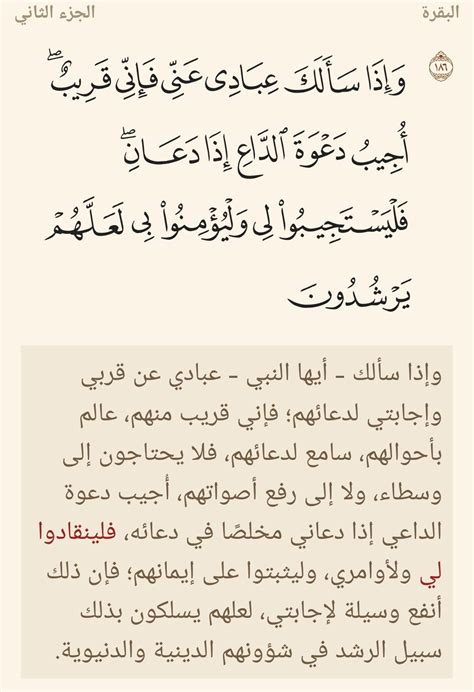 البقرة
الجزء الثاني
١٨٦
وَإِذَا سَأَلَكَ عِبَادِى عَنِّى فَإِنِّى قَرِيبٌۖ
أُجِيبُ دَعْوَةَ ٱلدَّاعِ إِذَا دَعَانِۖ
فَلْيَسْتَجِيبُوا۟ لِى وَلْيُؤْمِنُوا۟ بِى لَعَلَّهُمْ
يَرْشُدُونَ
وإذا سألك - أيها النبي - عبادي عن قربي
وإجابتي لدعائهم؛ فإني قريب منهم، عالم
بأحوالهم، سامع لدعائهم، فلا يحتاجون إلى
وسطاء، ولا إلى رفع أصواتهم، أُجيب دعوة
الداعي إذا دعاني مخلصًا في دعائه، فلينقادوا
لي ولأوامري، وليثبتوا على إيمانهم؛ فإن ذلك
أنفع وسيلة لإجابتي، لعلهم يسلكون بذلك
سبيل الرشد في شؤونهم الدينية والدنيوية.